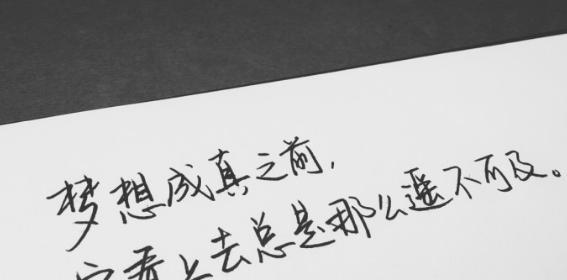 梦想成真之前,
它看上去总是那么遥不可及。